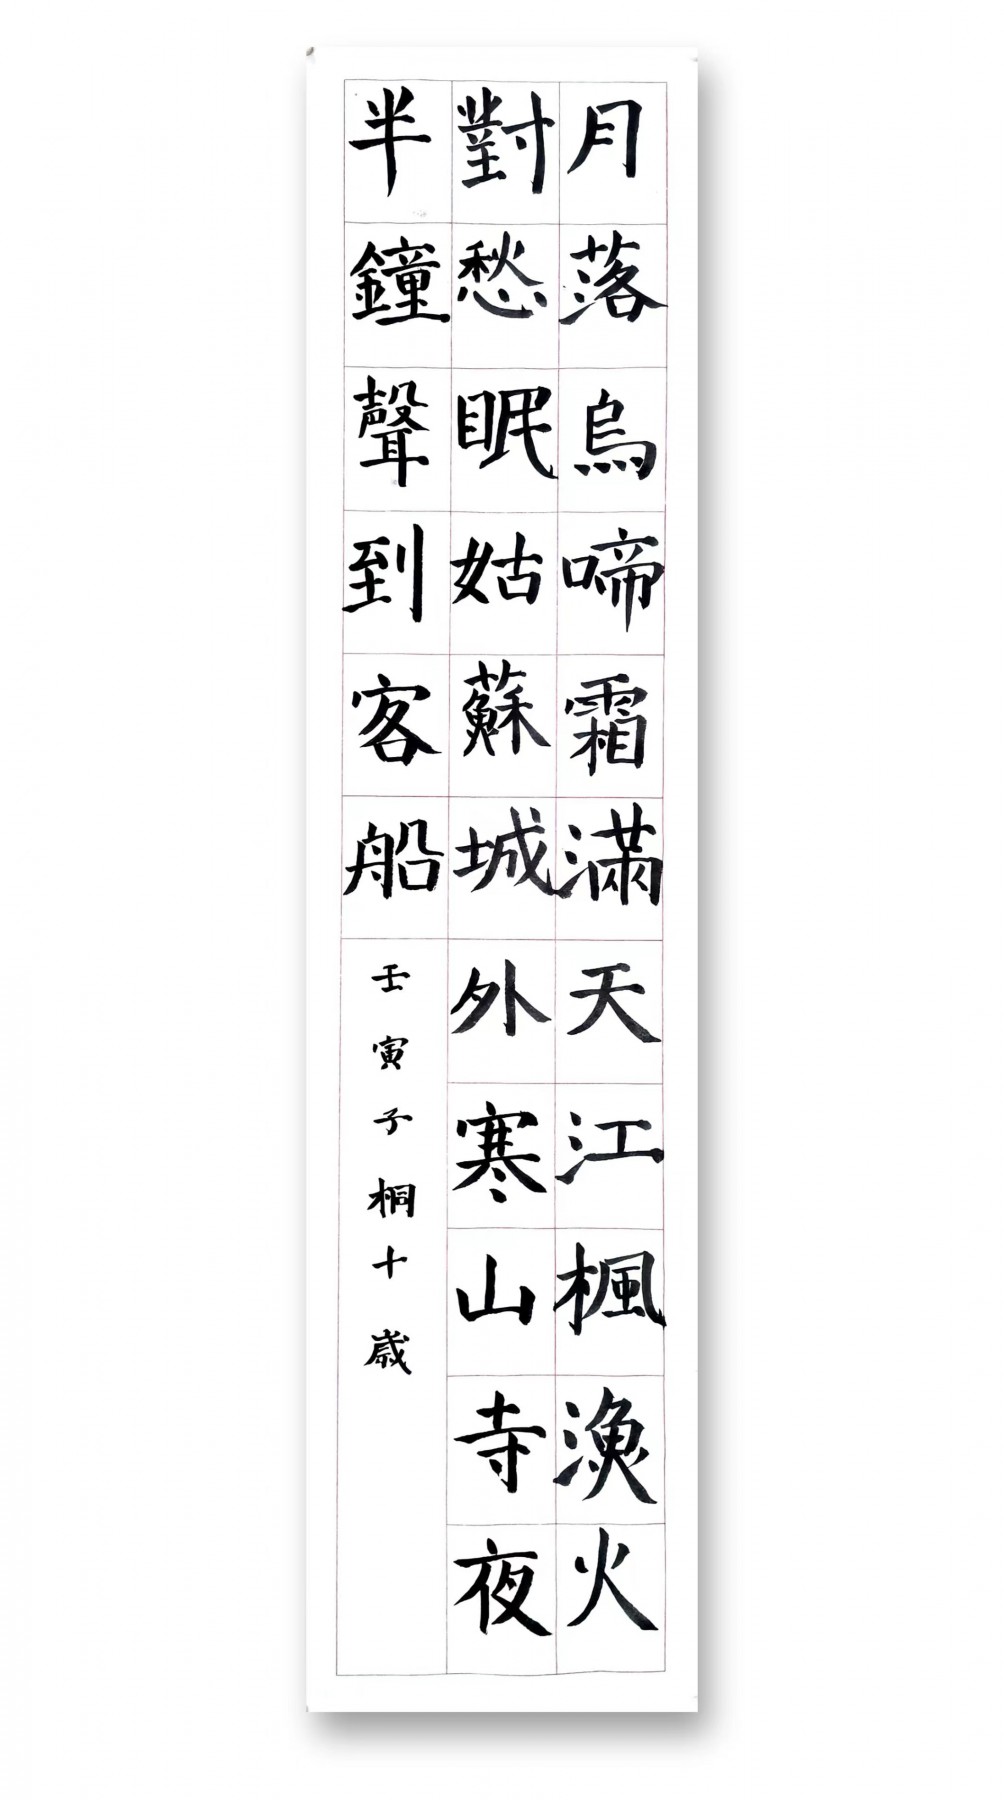 月落烏啼霜滿天江楓漁火
對愁眠姑蘇城外寒山寺夜
半鐘聲到客船
壬寅子桐十歲